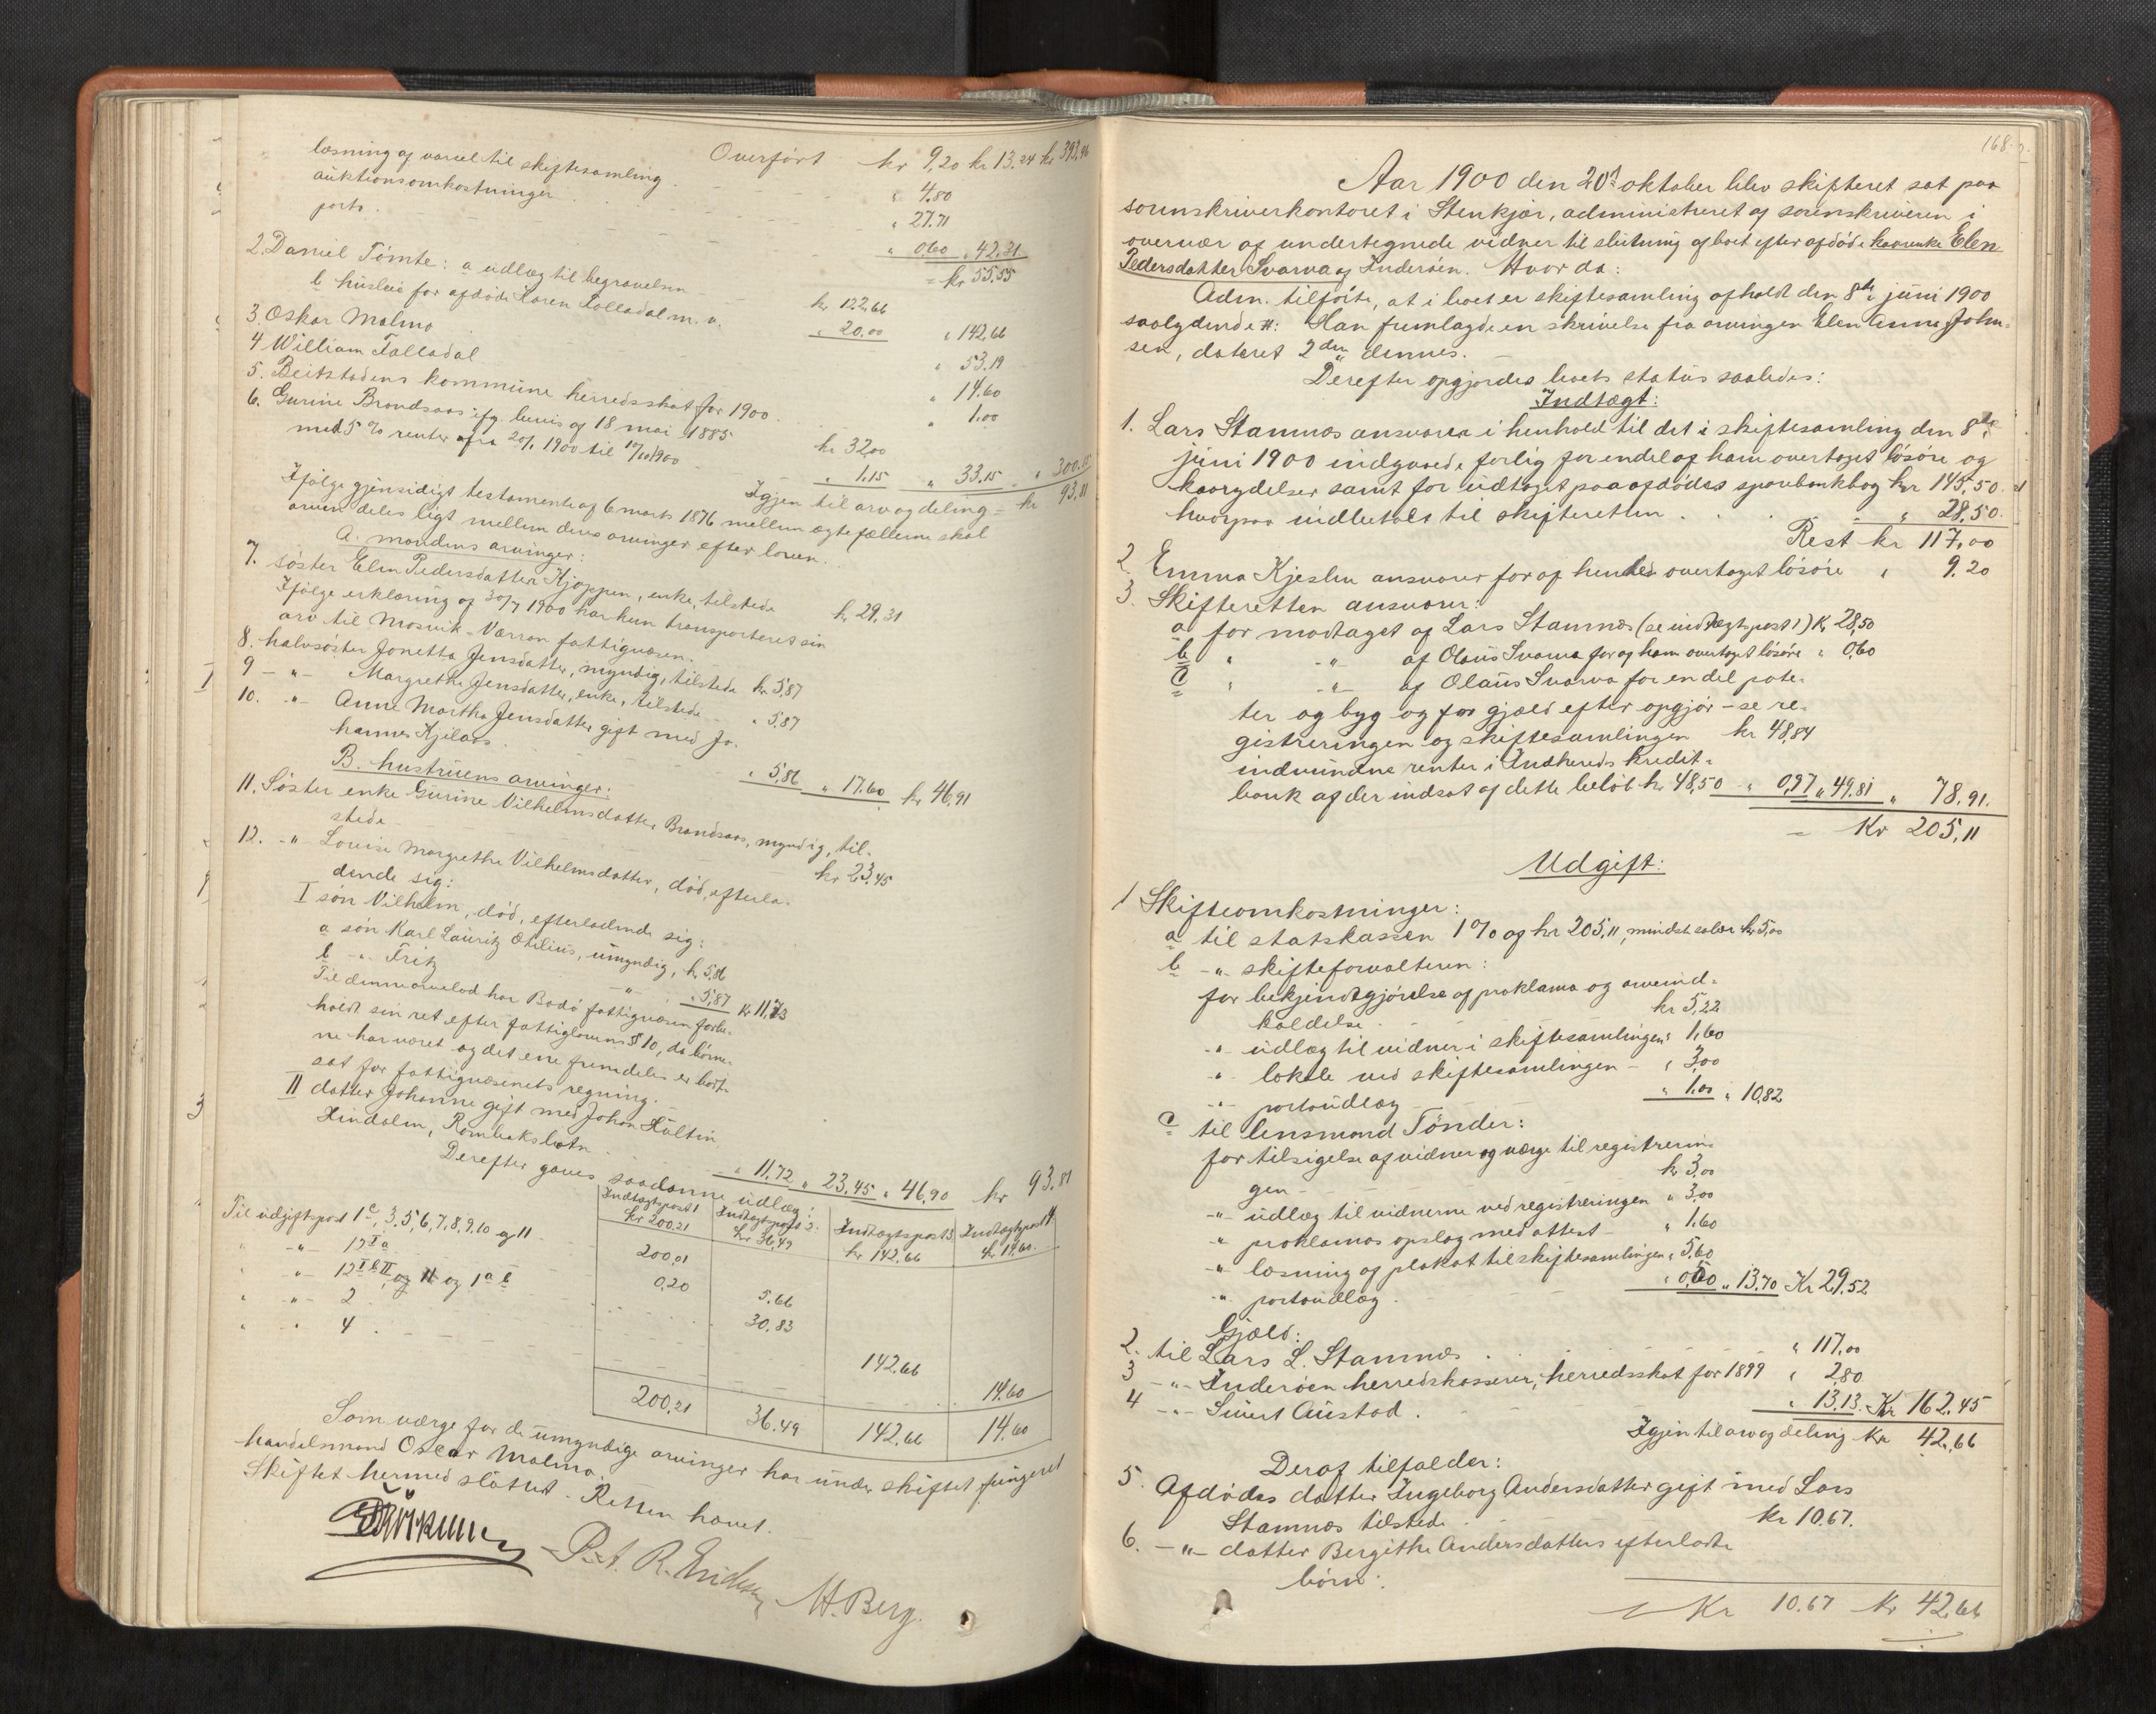 Overført kr 9,20 kr 13.24 kr 393,96
læsning af varsel til skiftesamling . " 4.80
auktionsomkostninger . " 27.71
porto . " 0.60 " 42.31
= kr 55.55
2. Daniel Tømte: a udlæg til begravelsen kr 122,66
b husleie for afdøde Karen Folladal m. v. " 20,00 " 142,66
3. Oskar Malmo " 53.19
4 William Folladal " 14.60
5. Beitstadens kommune herredsskat for 1900 . " 1.00
6. Gurine Brandsaas ifg. bevis af 18 mai 1885 kr 32,00
med 5 % renter fra 20/1 1900 til 10/10 1900 " 1.15 " 33.15 " 300.15
Igjen til arv og deling = kr 93,81
Ifølge gjensidigt testamente af 6 marts 1876 mellem ægtefællerne skal
arven deles ligt mellem deres arvinger efter loven.
A. mandens arvinger:
7. søster Elen Pedersdatter Kjøppen, enke, tilstede kr 29,31
Ifølge erklæring af 30/7 1900 har hun transporteret sin
arv til Mosvik-Værran fattigvæsen.
8. halvsøster Jonetta Jensdatter, myndig, tilstede kr 5,87
9 - " - Margrethe Jensdatter, enke, tilstede " 5,87
10. - " - Anne Martha Jensdatter gift med Jo-
hannes Kjilaas . " 5,86 " 17.60 kr 46,91
B. hustruens arvinger:
11. Søster enke Gurine Vilhelmsdatter Brandsaas, myndig, til-
stede kr 23,45
12. - " Louise Margrethe Vilhelmsdatter, død, efterla-
dende sig:
I søn Vilhelm, død, efterladende sig:
a søn Karl Lauritz Otilius, umyndig, kr 5,86
b - " - Fritz - " - " 5,87 kr 11,73
Til denne arvelod har Bodø fattigvæsen forbe-
holdt sin ret efter fattiglovens § 10, da børne-
ne har været og det ene fremdeles er bort-
sat for fattigvæsenets regning.
II datter Johanne gift med Johan Hultin
Hindalen, Rombaksbotn . " 11.72 " 23,45 " 46,90 kr 93.81
Derefter gaves saadanne udlæg:
Indtægtspost 1 kr 200.21 Indtægtspost 2. kr 36,49 Indtægtspost 3 kr 142,66 Indtægtspost 4 kr 14,60.
Til udgiftspost 1c, 3, 5, 6, 7, 8, 9, 10 og 11 200,01
" - " - 12 I a 0,20 5.66
" - " - 12 I b II og 1 a b 30.83
" - " - 2 142.66
" - " 4 . 14.60
200.21 36.49 142,66 14.60
Som værge for de umyndige arvinger har under skiftet fungeret
handelsmand Oscar Malmo.
Skiftet hermed sluttet. Retten hævet.
P. A. R. Eriksen M. Berg.
168
Aar 1900 den 20de oktober blev skifteret sat paa
sorenskriverkontoret i Stenkjær, administreret af sorenskriveren i
overvær af undertegnede vidner til slutning af boet efter afdøde kaarenke Elen
Pedersdatter Svarva af Inderøen. Hvor da:
Adm. tilførte, at i boet er skiftesamling afholdt den 8de juni 1900
saalydende #: Han fremlagde en skrivelse fra arvingen Elen Anna John-
sen, dateret 2den dennes.
Derefter opgjordes boets status saaledes:
Indtægt:
1. Lars Stamnes ansvarer i henhold til det i skiftesamling den 8de
juni 1900 indgaaede forlig for endel af ham overtaget løsøre og
kaarydelser samt for udtaget paa afdødes sparebankbog kr 145,50.
hvorpaa indbetalt til skifteretten . . . " 28,50.
Rest kr 117,00
2. Emma Kjeslen ansvarer for af hende overtaget løsøre " 9.20
3. Skifteretten ansvarer:
a for modtaget af Lars Stamnes (se indtægtspost 1) Kr 28,50
b " - " - af Olaus Svarva for af ham overtaget løsøre " 0,60
c " - " - af Olaus Svarva for en del pote-
ter og byg og for gjæld efter opgjør - se re-
gistreringen og skiftesamlingen kr 48,84
indvundne renter i Indhereds kredit-
bank af der indsat af dette beløb kr 48,50 " 0,97 " 49.81 " 78.91.
= Kr 205,11
Udgift:
1 Skifteomkostninger:
a til statskassen 1 % af kr 205,11, mindste salær kr 5,00
b - " - skifteforvalteren:
for bekjendtgjørelse af proklama og arveind-
kaldelse . kr 5,22
- " - udlæg til vidner i skiftesamlingen " 1,60
- " - lokale ved skiftesamlingen - " 3,00
- " - portoudlæg " 1.00 " 10,82
c til lensmand Tønder:
for tilsigelse af vidner og værge til registrerin-
gen - kr 3,00
- " - udlæg til vidnerne ved registreringen " 3,00
- " proklamas opslag med attest - " 1.60
- " læsning af plakat til skiftesamlingen " 5,60
- " portoudlæg . " 0,50 " 13.70 Kr 29,52
Gjæld:
2. til Lars L. Stamnes . " 117,00
3 - " - Inderøen herredskasserer, herredsskat for 1899 " 2,80
4 - " - Sivert Austad . " 13,13. Kr 162,45
Igjen til arv og deling Kr 42,66
Deraf tilfalder:
5. Afdødes datter Ingeborg Andersdatter gift med Lars
Stamnes tilstede kr 10.67.
6. - " - datter Bergithe Andersdatters efterladte
børn:
Kr 10.67 Kr 42,66